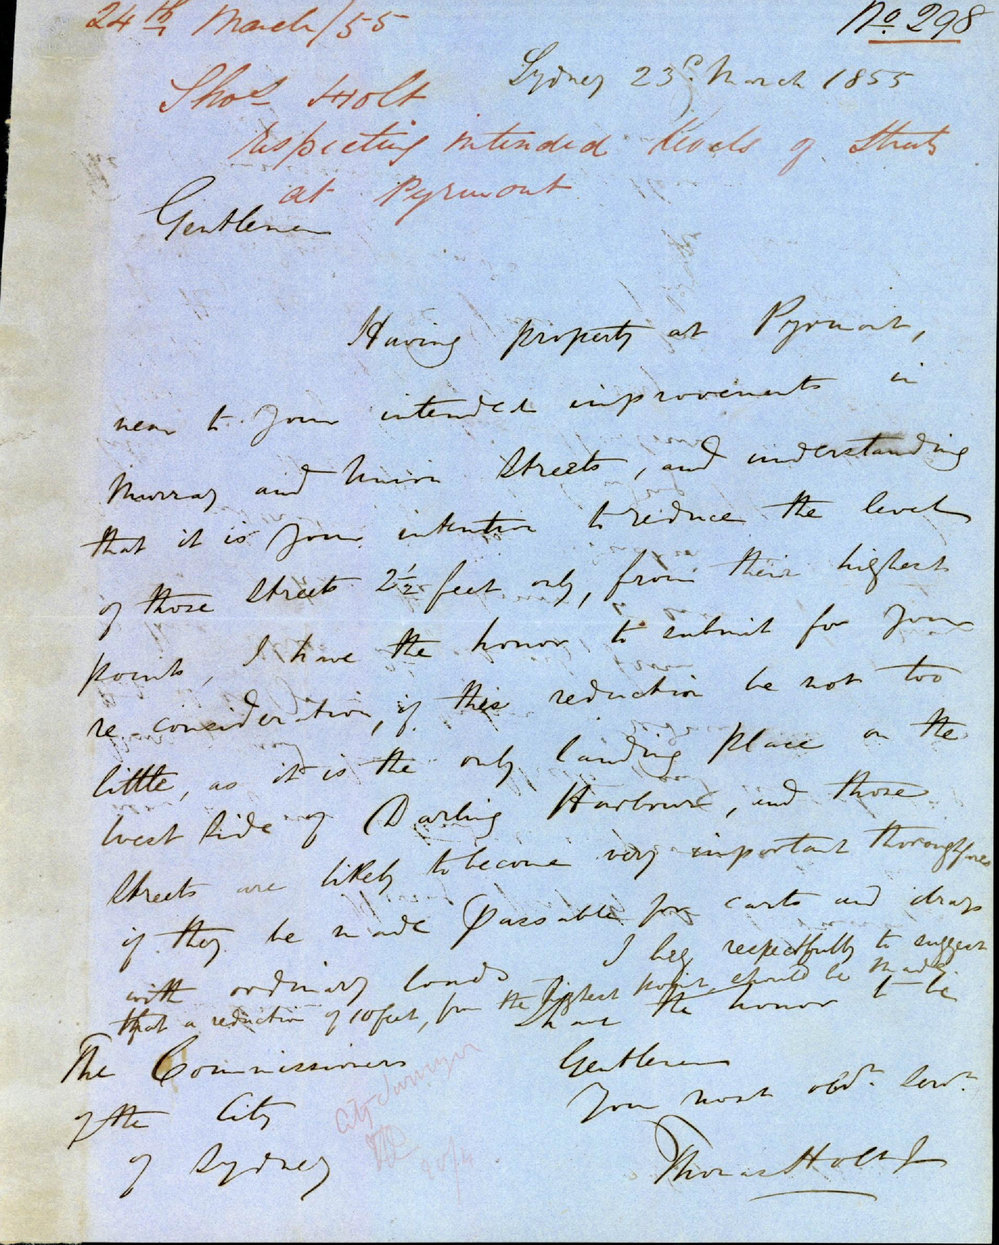 24th March/55
No 298
Sydney 23d March 1855
Thos Holt
respecting intended levels of Streets
at Pyrmont
Gentlemen
Having property at Pyrmont,
near to your intended improvements in
Murray and Union Streets, and understanding
that it is your intention to reduce the level
of those Streets 2½ feet only, from their highest
points, I have the honor to submit for your
re consideration, if this reduction be not too
little, as it is the only landing place on the
West Side of Darling Harbour, and those
Streets are likely to become very important thoroughfares
if they be made passable for carts and drays
with ordinary loads I beg respectfully to suggest
that a reduction of 10 feet, from the highest point, should be made.
I have the honor to be
Gentlemen
Your most obdt. Servt.
Thomas Holt Jr
The Commissioners
of the City
of Sydney
City Surveyor